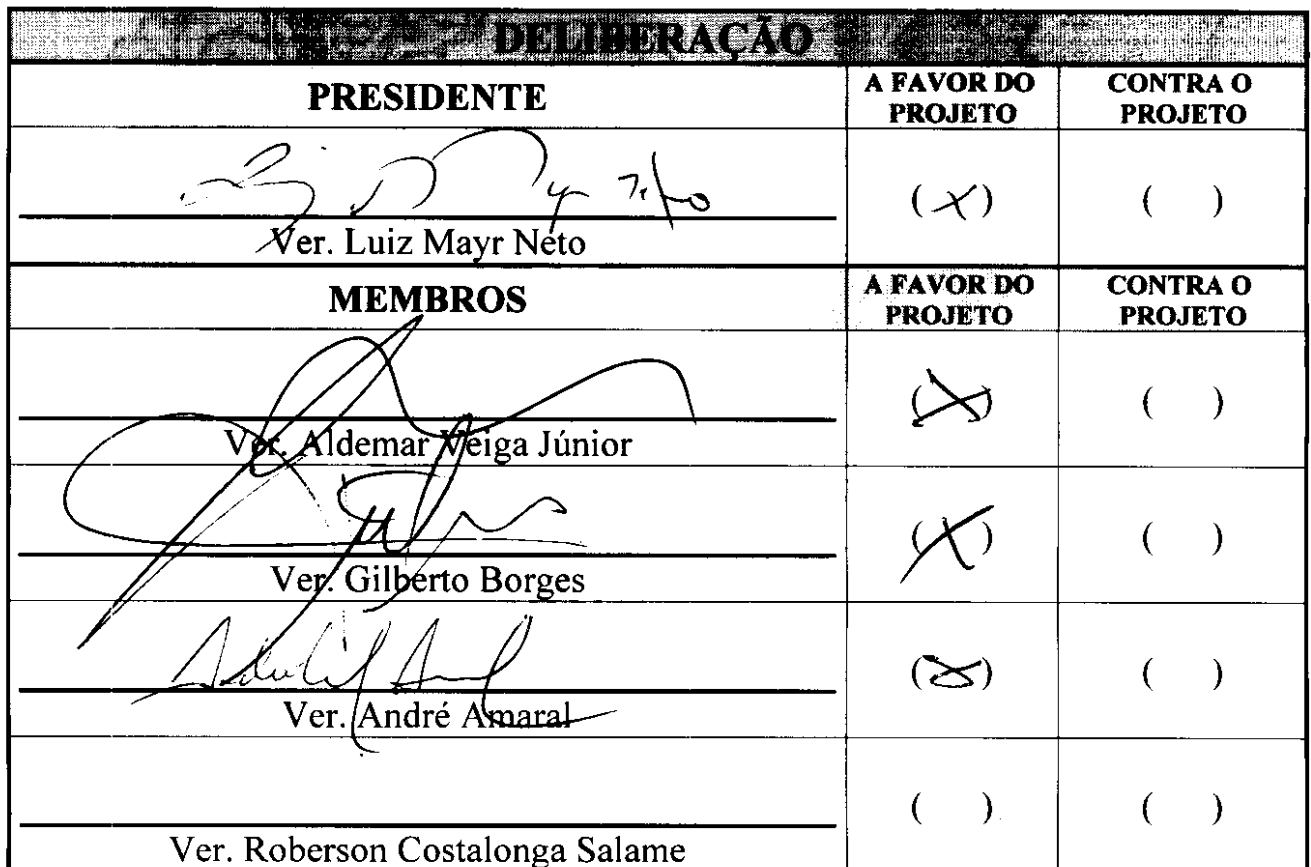 DELIBERAÇÃO
PRESIDENTE A FAVOR DO PROJETO CONTRA O PROJETO
( X ) ( )
Ver. Luiz Mayr Neto
MEMBROS A FAVOR DO PROJETO CONTRA O PROJETO
( X ) ( )
Ver. Aldemar Veiga Júnior
( X ) ( )
Ver. Gilberto Borges
( X ) ( )
Ver. André Amaral
( ) ( )
Ver. Roberson Costalonga Salame